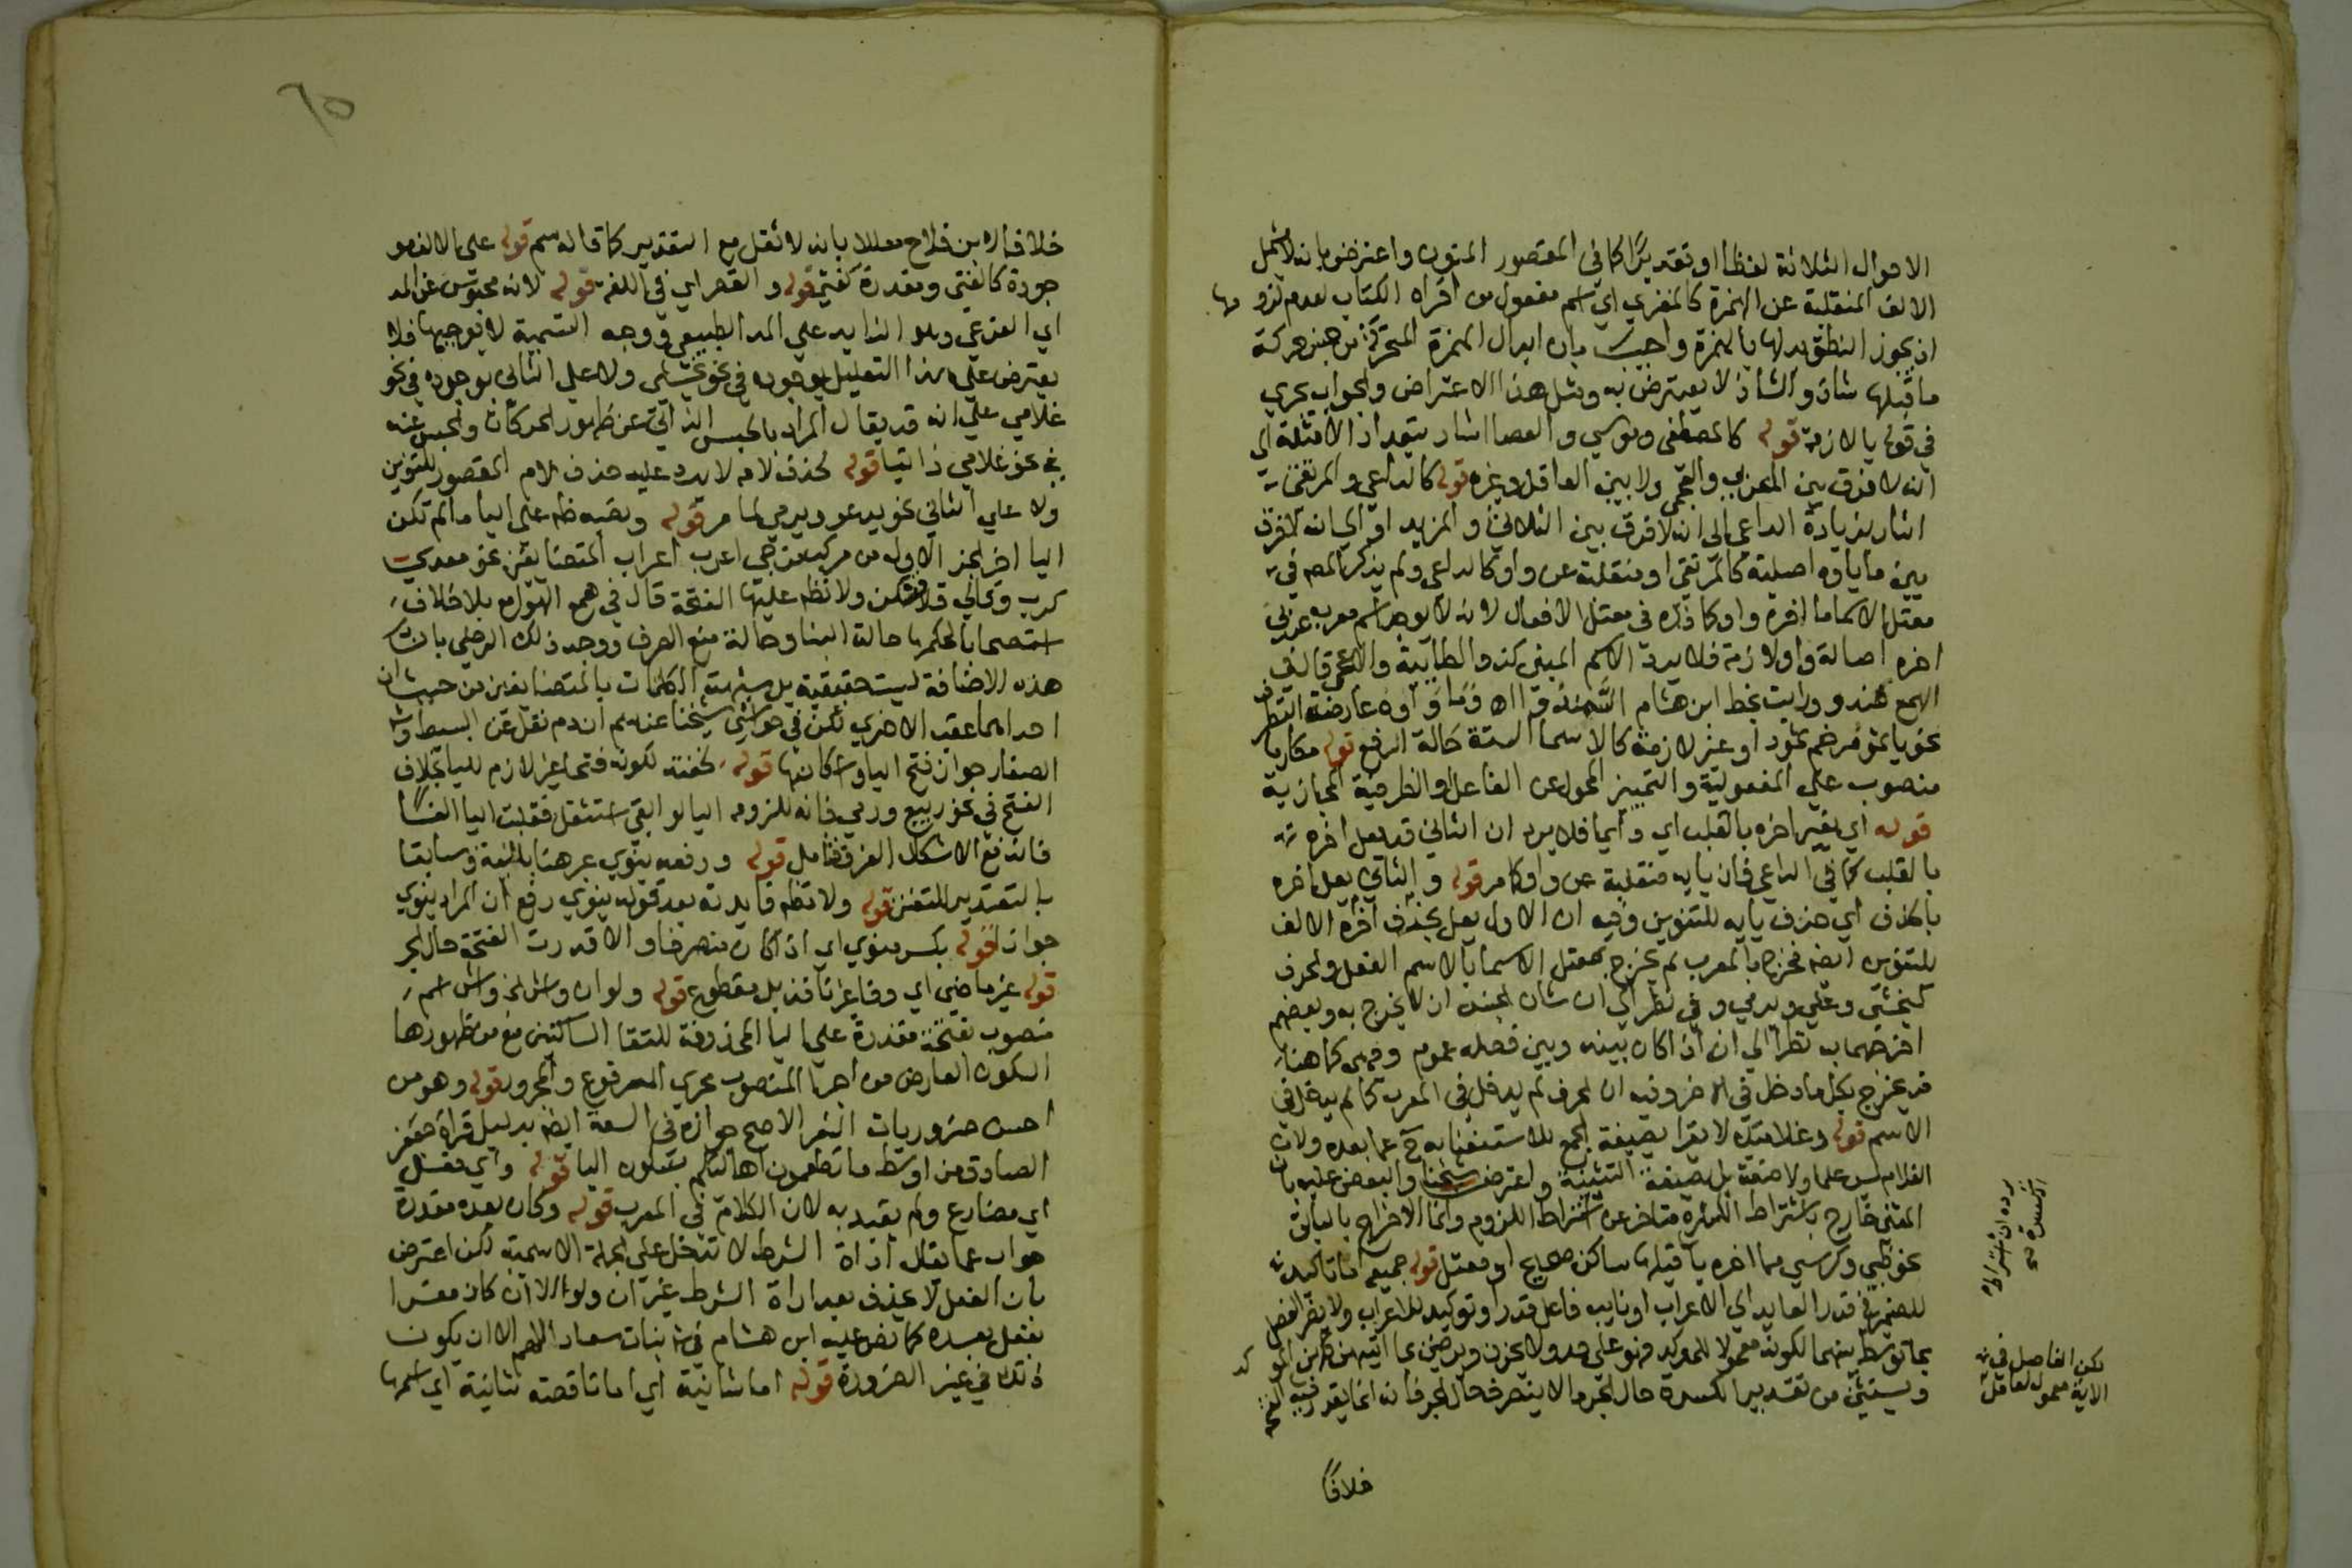 الاحوال الثلاثة لفظا او تقديرًا كما في المقصور المنون واعترض بانه لا يشمل
الالف المنقلبة عن الهمزة كالمقري اي اسم مفعول من اقراه الكتاب لعدم لزومها
اذ يجوز النطق بدلها بالهمزة واجيب بان ابدال الهمزة المتحركة من جنس حركة
ما قبلها شاذ والشاذ لا يعترض به ومثل هذا الاعتراض والجواب يجري
في قوله يا لازمة قوله كالمصطفى وموسي والعصا اشار بتعداد الامثلة الي
انه لا فرق بين العربي والعجمي ولا بين العاقل وغيره قوله كالداعي والمرتقي
اشار بزيادة الداعي الي انه لا فرق بين الثلاثي والمزيد او الي انه لا فرق
بين ما ياوه اصلية كالمرتقي او منقلبة عن واو كالداعي ولم يذكر المص في
معتل الاسما ما اخره واو كما ذكره في معتل الافعال لانه لا يوجد اسم معرب عربي
اخره اصالة واو لازمة فلا يرد الاسم المبني كذو الطائية والاعجمي قال في
الهمع هندو ورايت بخط ابن هشام السمندو و ما واوه عارضة التطرف
نحو يا ثمو مرخم ثمود او غير لازمة كالاسما الستة حالة الرفع قوله مكارما
منصوب علي المفعولية والتمييز المحول عن الفاعل والظرفية المجازية
قوله اي تغير اخره بالقلب اي دائما فلا يرد ان الثاني قد يعل اخره
بالقلب كما في الداعي فان يايه منقلبة عن واو كما مر قوله والثاني يعل اخره
بالحذف اي حذف يايه للتنوين وفيه ان الاول يعل بحذف اخره الالف
للتنوين ايضا فخرج بالمعرب لم يخرج بمعتل الاسما بالاسم الفعل والحرف
كيخشي وعلي ويرمي وفي نظر الي ان شان الجنس ان لا يخرج به وبعضهم
اخرجهما به نظرا الي انه اذا كان بينه وبين فصله عموم وجهي كما هنا
قد يخرج بكل ما دخل في الاخر وفيه ان الحرف لم يدخل في المعرب كما لم يدخل في
الاسم قوله وغلاميّ لا يقرا بصيغة الجمع للاستغنا به ح عما بعده ولان
الغلام ليس علما ولا صفة بل بصيغة التثنية واعترض شيخنا والبعض عليه بان
المثني خارج باشتراط الكسرة متاخر عن اشتراط اللزوم وانما الاخراج بالسابق
نحو ظبي وكرسي مما اخره يا قبلها ساكن صحيح او معتل قوله جميعه اما تاكيد
للضمير في قدر العايد الي الاعراب او نايب فاعل قدر او توكيد للاعراب ولا يضر الفصل
بما توسط بينهما لكونه معمولا للموكد فهو علي حد ولا يحزن ويرضين بما اتيتهن كلهن
ويستثني من تقدير الكسرة حال الجر ما لا ينصرف حال الجر فانه انما يقدر فيه الفتحة
لكن الفاصل في
الاية معمول لعامل
خلافا
خلافا لابن فلاح معللا بانه لا ثقل مع التقدير كما قاله سم قوله علي الالف مو
جودة كالفتي ومقدرة كفتي قوله والقصر اي في اللغة قوله لانه محبوس عن المد
اي الفرعي وهو الزايد علي المد الطبيعي ووجه التسمية لا يوجبها فلا
يعترض علي هذا التعليل بوجوده في نحو يخشي ولا علي الثاني بوجوده في نحو
غلامي علي انه قد يقال المراد بالحبس الذاتي عن ظهور الحركات والحبس عنه
في نحو غلامي ذاتيا قوله لحذف لامه لا يرد عليه حذف لام المقصور للتنوين
ولا علي الثاني نحو يدعو ويرمي لما مر قوله ونصبه ظهر علي اليا ما لم تكن
اليا اخر الجز الاول من مركب مزجي اعرب اعراب المتضايفين نحو معدي
كرب وقالي قلا فتسكن ولا تظهر عليها الفتحة قال في همع الهوامع بلا خلاف
استصحابا لحكمها حالة البنا وحالة منع الصرف ووجه ذلك الرضي بان
هذه الاضافة ليست حقيقية بل شبهت الكلمات بالمتضايفين من حيث ان
احداهما عقب الاخري لكن في حواشي شيخنا عند سم انه نقل عن البسيط
الصفار جواز فتح اليا واسكانها قوله لخفته لكونه فتحا غير لازم لليا بخلاف
الفتح في نحو بيع ورمي فانه للزومه اليا لو ابقي استثقل فقلبت اليا الفا
فاندفع الاشكال الفرق فتامل قوله ورفعه ينوي عبر هنا بالنية وسابقا
بالتقدير للتفنن قوله ولا تظهر فايدته بعد قوله ينوي رفع ان المراد ينوي
جوازا قوله بكسر منوي اي اذا كان منصرفا والا قدرت الفتحة حال الجر
قوله غير ماضي اي وفا غير نافذ بل مقطوع قوله ولو ان واش الخ واش اسم
منصوب بفتحة مقدرة علي اليا المحذوفة للتقا الساكنين منع من ظهورها
السكون العارض من اجرا المنصوب مجري المرفوع والمجرور قوله وهو من
احسن ضروريات الشعر الاصح جوازه في السعة ايضا بدليل قراة جعفر
الصادق من اوسط ما تطعمون اهاليكم بسكون اليا قوله واي فعل
اي مضارع ولم يقيد به لان الكلام في المعرب قوله وكان بعده مقدرة
جواب عما يقال اداة الشرط لا تدخل علي الجملة الاسمية لكن اعترض
بان الفعل لا يحذف بعد اداة الشرط غير ان ولو الا ان كان مفسرا
بفعل بعده كما نص عليه ابن هشام في بانت سعاد اللهم الا ان يكون
ذلك في غير الضرورة قوله اما شانية اي اما ناقصة شانية اي اسمها